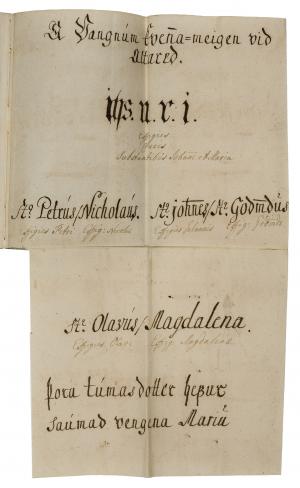 A Vangnúm Qveña=meigen vid
Altared.
ihs. n. r. i.
effigies
crucis
Substantibus Johañe et Maria
Ste Petrús/Nicholaús. Ste johñes/Ste Godm̃dús
Effigies Petri Effig: Nicolai Effigies Johannis Effig: Godm̃di
Ste Olavús/Magdalena.
Effigies Olavi Effig: Magdalenæ
þora túmasdotter hefur
saúmad vengena Mariú